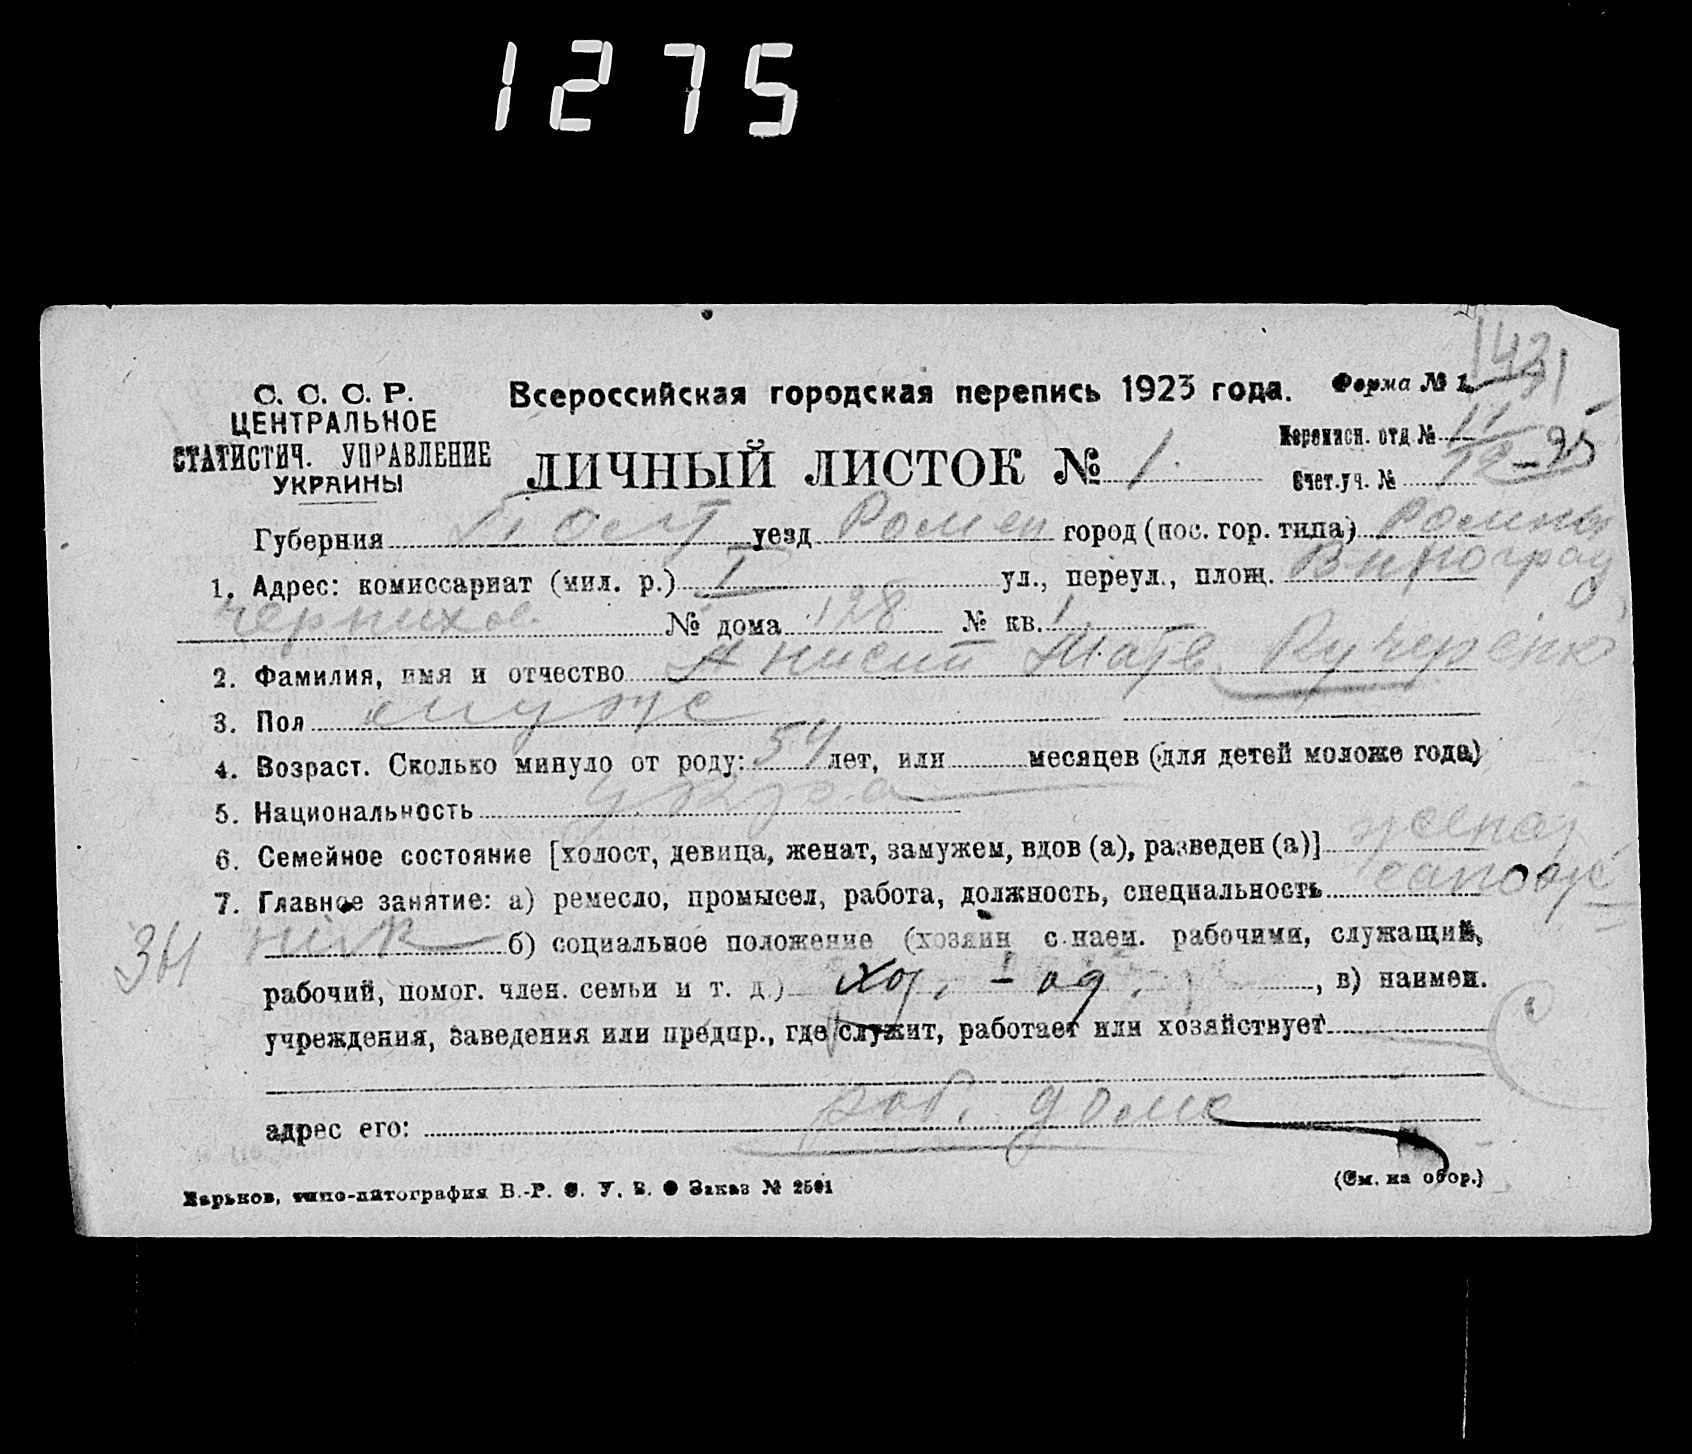 1275
1431
С. С. С. Р.
ЦЕНТРАЛЬНОЕ
СТАТИСТИЧ. УПРАВЛЕНИЕ
УКРАИНЫ
Всероссийская городская перепись 1923 года.
Форма № 1.
ЛИЧНЫЙ ЛИСТОК № 1.
Переписн. отд. № 11
Счет. уч. № 12-95
Губерния Полт уезд Ромен город (пос. гор. типа) Ромны
1. Адрес: комиссариат (мил. р.) I ул., переул., площ. Виноград
№ дома 128 № кв. 1
2. Фамилия, имя и отчество Анисий Матв. Кучеренко
3. Пол муж
4. Возраст. Сколько минуло от роду: 54 лет, или месяцев (для детей моложе года)
5. Национальность укр
6. Семейное состояние [холост, девица, женат, замужем, вдов (а), разведен (а)] женат
7. Главное занятие: а) ремесло, промысел, работа, должность, специальность сапож
ник б) социальное положение (хозяин с наем. рабочими, служащий,
рабочий, помог. член. семьи и т. д.) хоз. - од. , в) наимен.
учреждения, заведения или предпр., где служит, работает или хозяйствует
адрес его: раб. дома
Харьков, типо-литография В.-Р. С. У. В. Заказ № 2501
(См. на обор.)